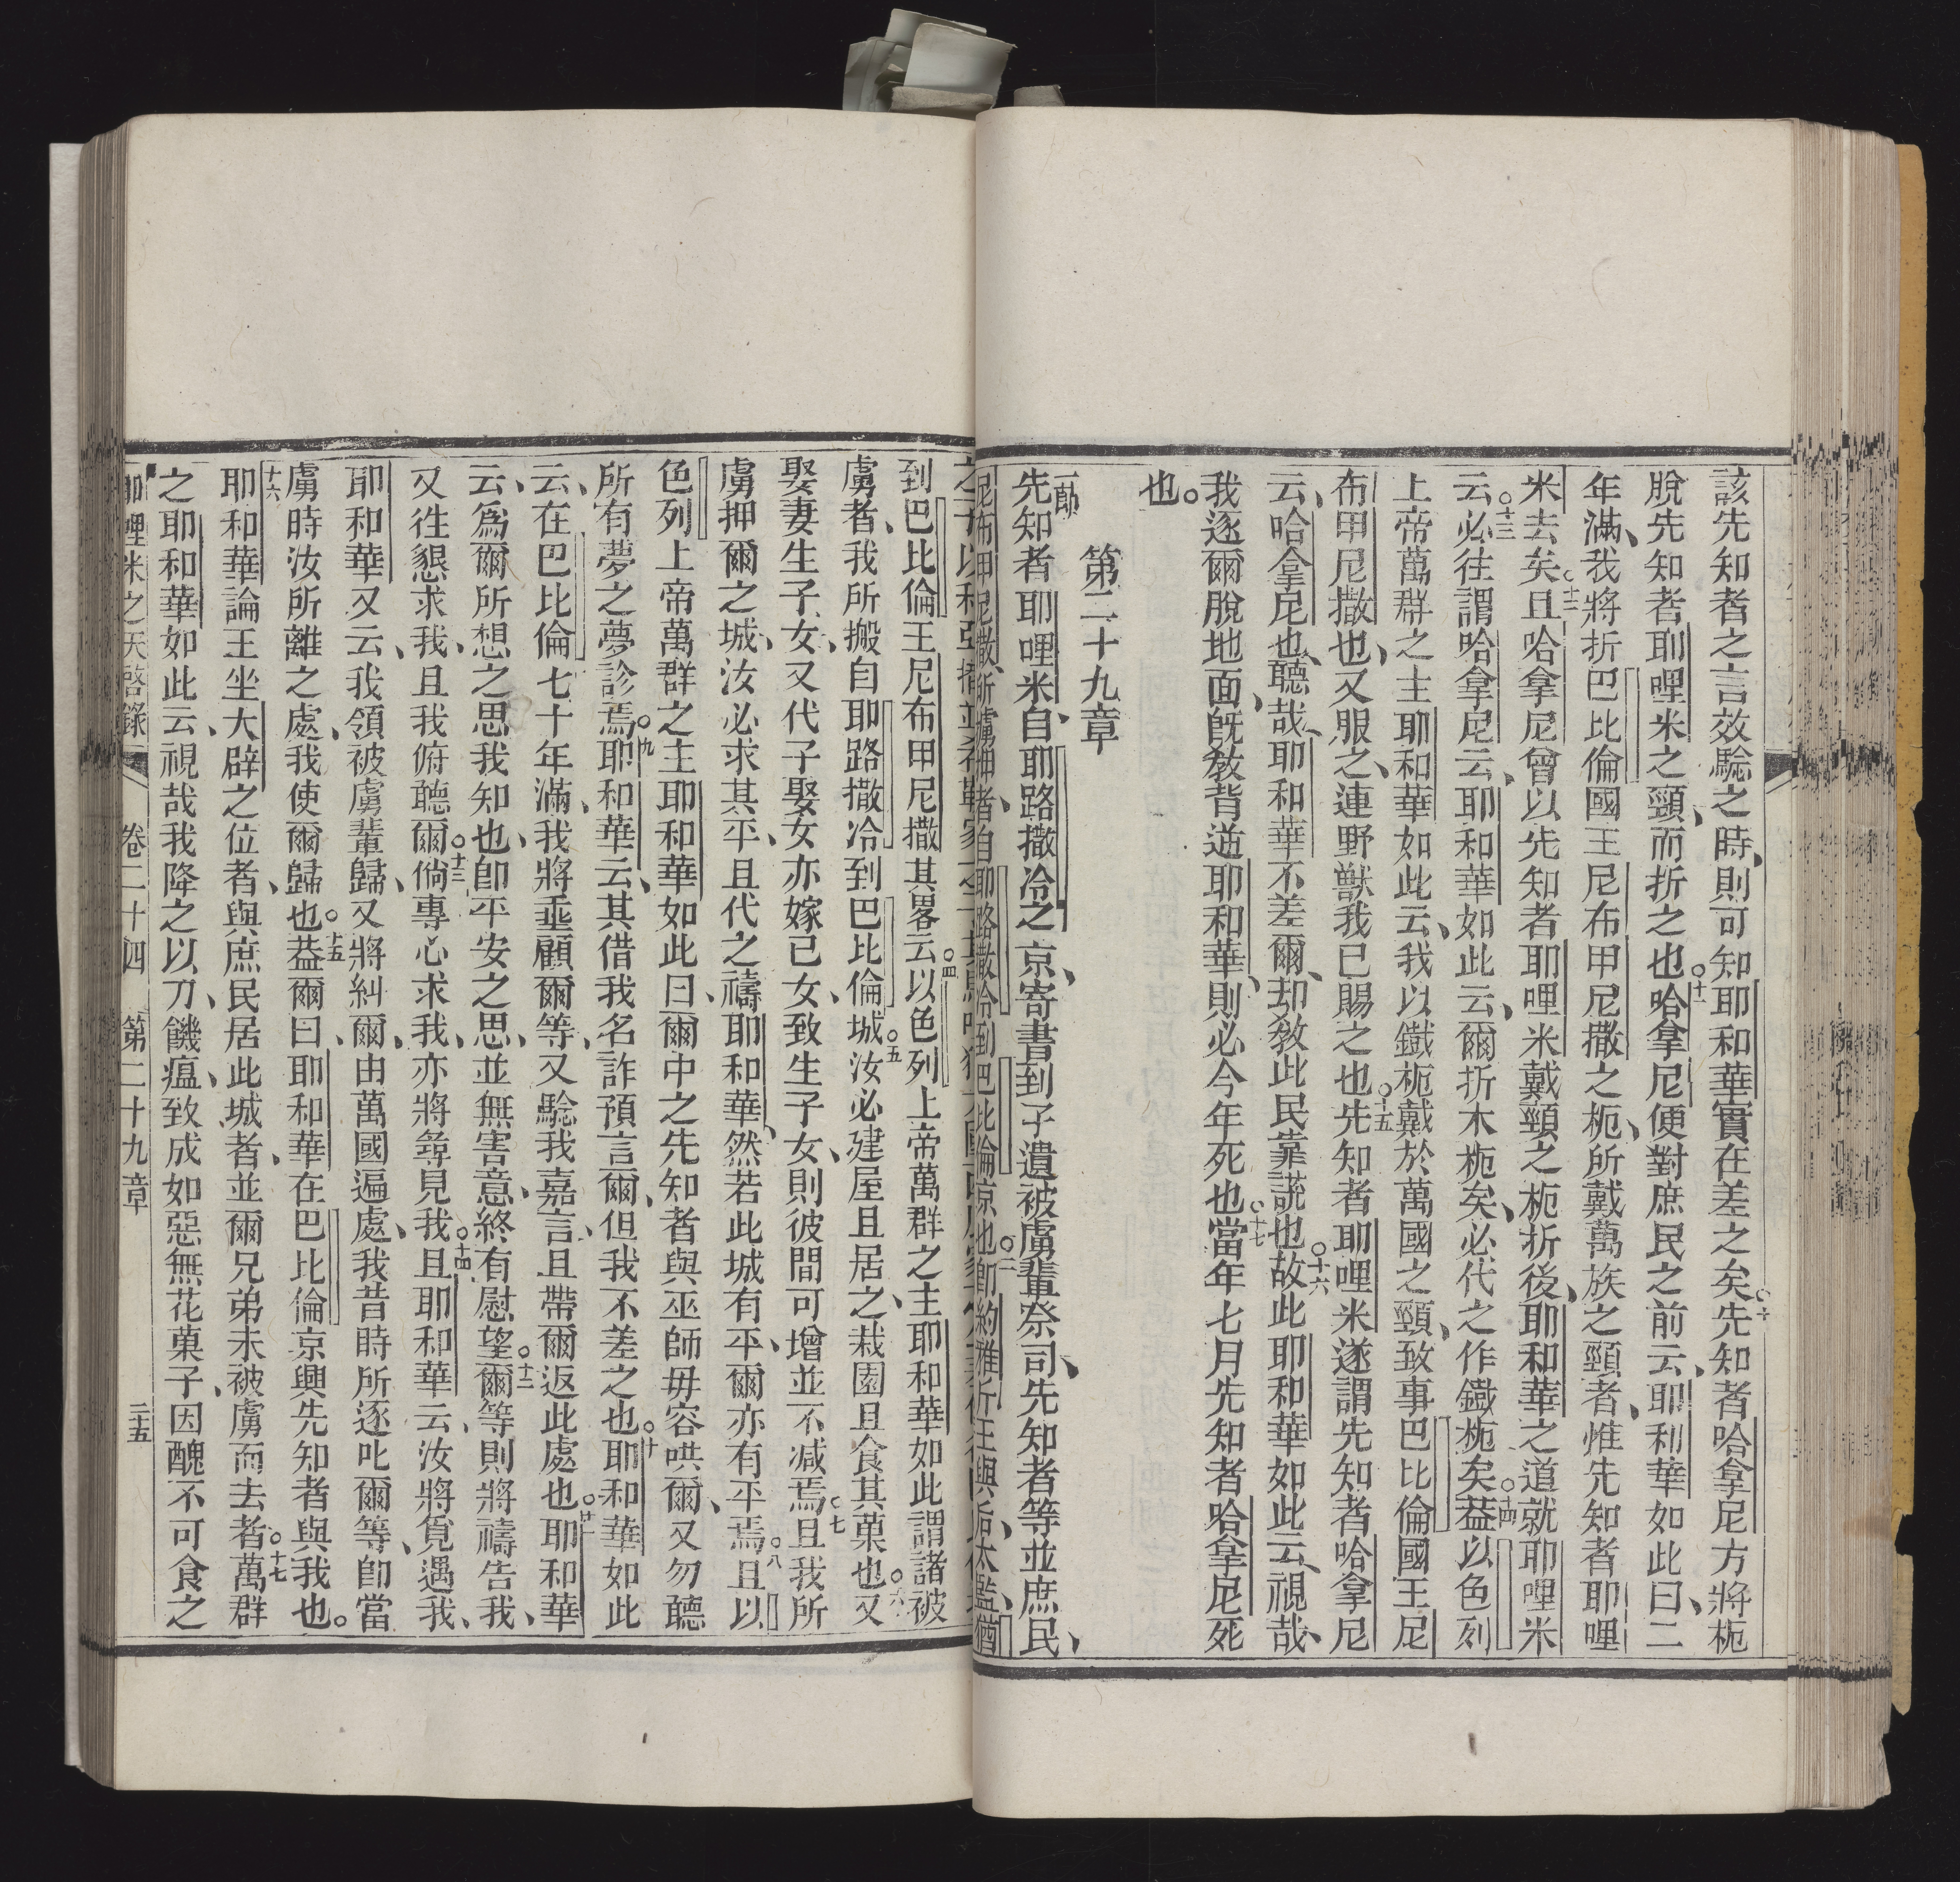 該先知者之言效騐之時、則可知耶和華實在差之矣○十先知者哈拿尼方將枙
脫先知者耶哩米之頸、而折之也○十一哈拿尼便對庶民之前云、耶和華如此曰、二
年滿、我將折巴比倫國王尼布甲尼撒之枙、所戴萬族之頸者、惟先知者耶哩
米去矣○十二且哈拿尼曾以先知者耶哩米戴頸之枙折後、耶和華之道就耶哩米
云○十三必往謂哈拿尼云、耶和華如此云、爾折木枙矣、必代之作鐵枙矣○十四葢以色列
上帝萬群之主耶和華如此云、我以鐵枙戴於萬國之頸、致事巴比倫國王尼
布甲尼撒也、又服之、連野獸我已賜之也○十五先知者耶哩米遂謂先知者哈拿尼
云、哈拿尼也、聽哉、耶和華不差爾、却敎此民靠謊也○十六故此耶和華如此云、視哉、
我逐爾脫地面、旣敎背逆耶和華、則必今年死也○十七當年七月先知者哈拿尼死
也。
第二十九章
一節先知者耶哩米、自耶路撒冷之京、寄書到孑遺被虜輩祭司、先知者等並庶民、
尼布甲尼撒、所擄押者自耶路撒冷到巴比倫京也○二卽約雅斤王與后、太監、猶
到巴比倫王尼布甲尼撒其畧云○四以色列上帝萬群之主耶和華如此謂諸被
虜者、我所搬自耶路撒冷到巴比倫城○五汝必建屋且居之、栽園且食其菓也○六又
娶妻生子女、又代子娶女、亦嫁己女、致生子女、則彼間可增並不減焉○七且我所
虜押爾之城、汝必求其平、且代之禱耶和華、然若此城有平、爾亦有平焉○八且以
色列上帝萬群之主耶和華如此曰、爾中之先知者與巫師毋容哄爾、又勿聽
所有夢之夢診焉○九耶和華云、其借我名詐預言爾、但我不差之也○十耶和華如此
云、在巴比倫七十年滿、我將垂顧爾等、又騐我嘉言、且帶爾返此處也○十一耶和華
云、爲爾所想之思我知也、卽平安之思、並無害意、終有慰望○十二爾等則將禱告我、
又往懇求我、且我俯聽爾○十三倘專心求我、亦將尋見我○十四且耶和華云、汝將覓遇我、
耶和華又云、我領被虜輩歸、又將糾爾、由萬國遍處、我昔時所逐叱爾等、卽當
虜時汝所離之處、我使爾歸也○十五葢爾曰、耶和華在巴比倫京興先知者與我也。
十六耶和華論王坐大辟之位者、與庶民居此城者、並爾兄弟未被虜而去者○十七萬群
之耶和華如此云、視哉我降之以刀、饑瘟、致成如惡無花菓子、因醜不可食之
耶哩米之天啓錄 卷二十四 第二十九章 二五